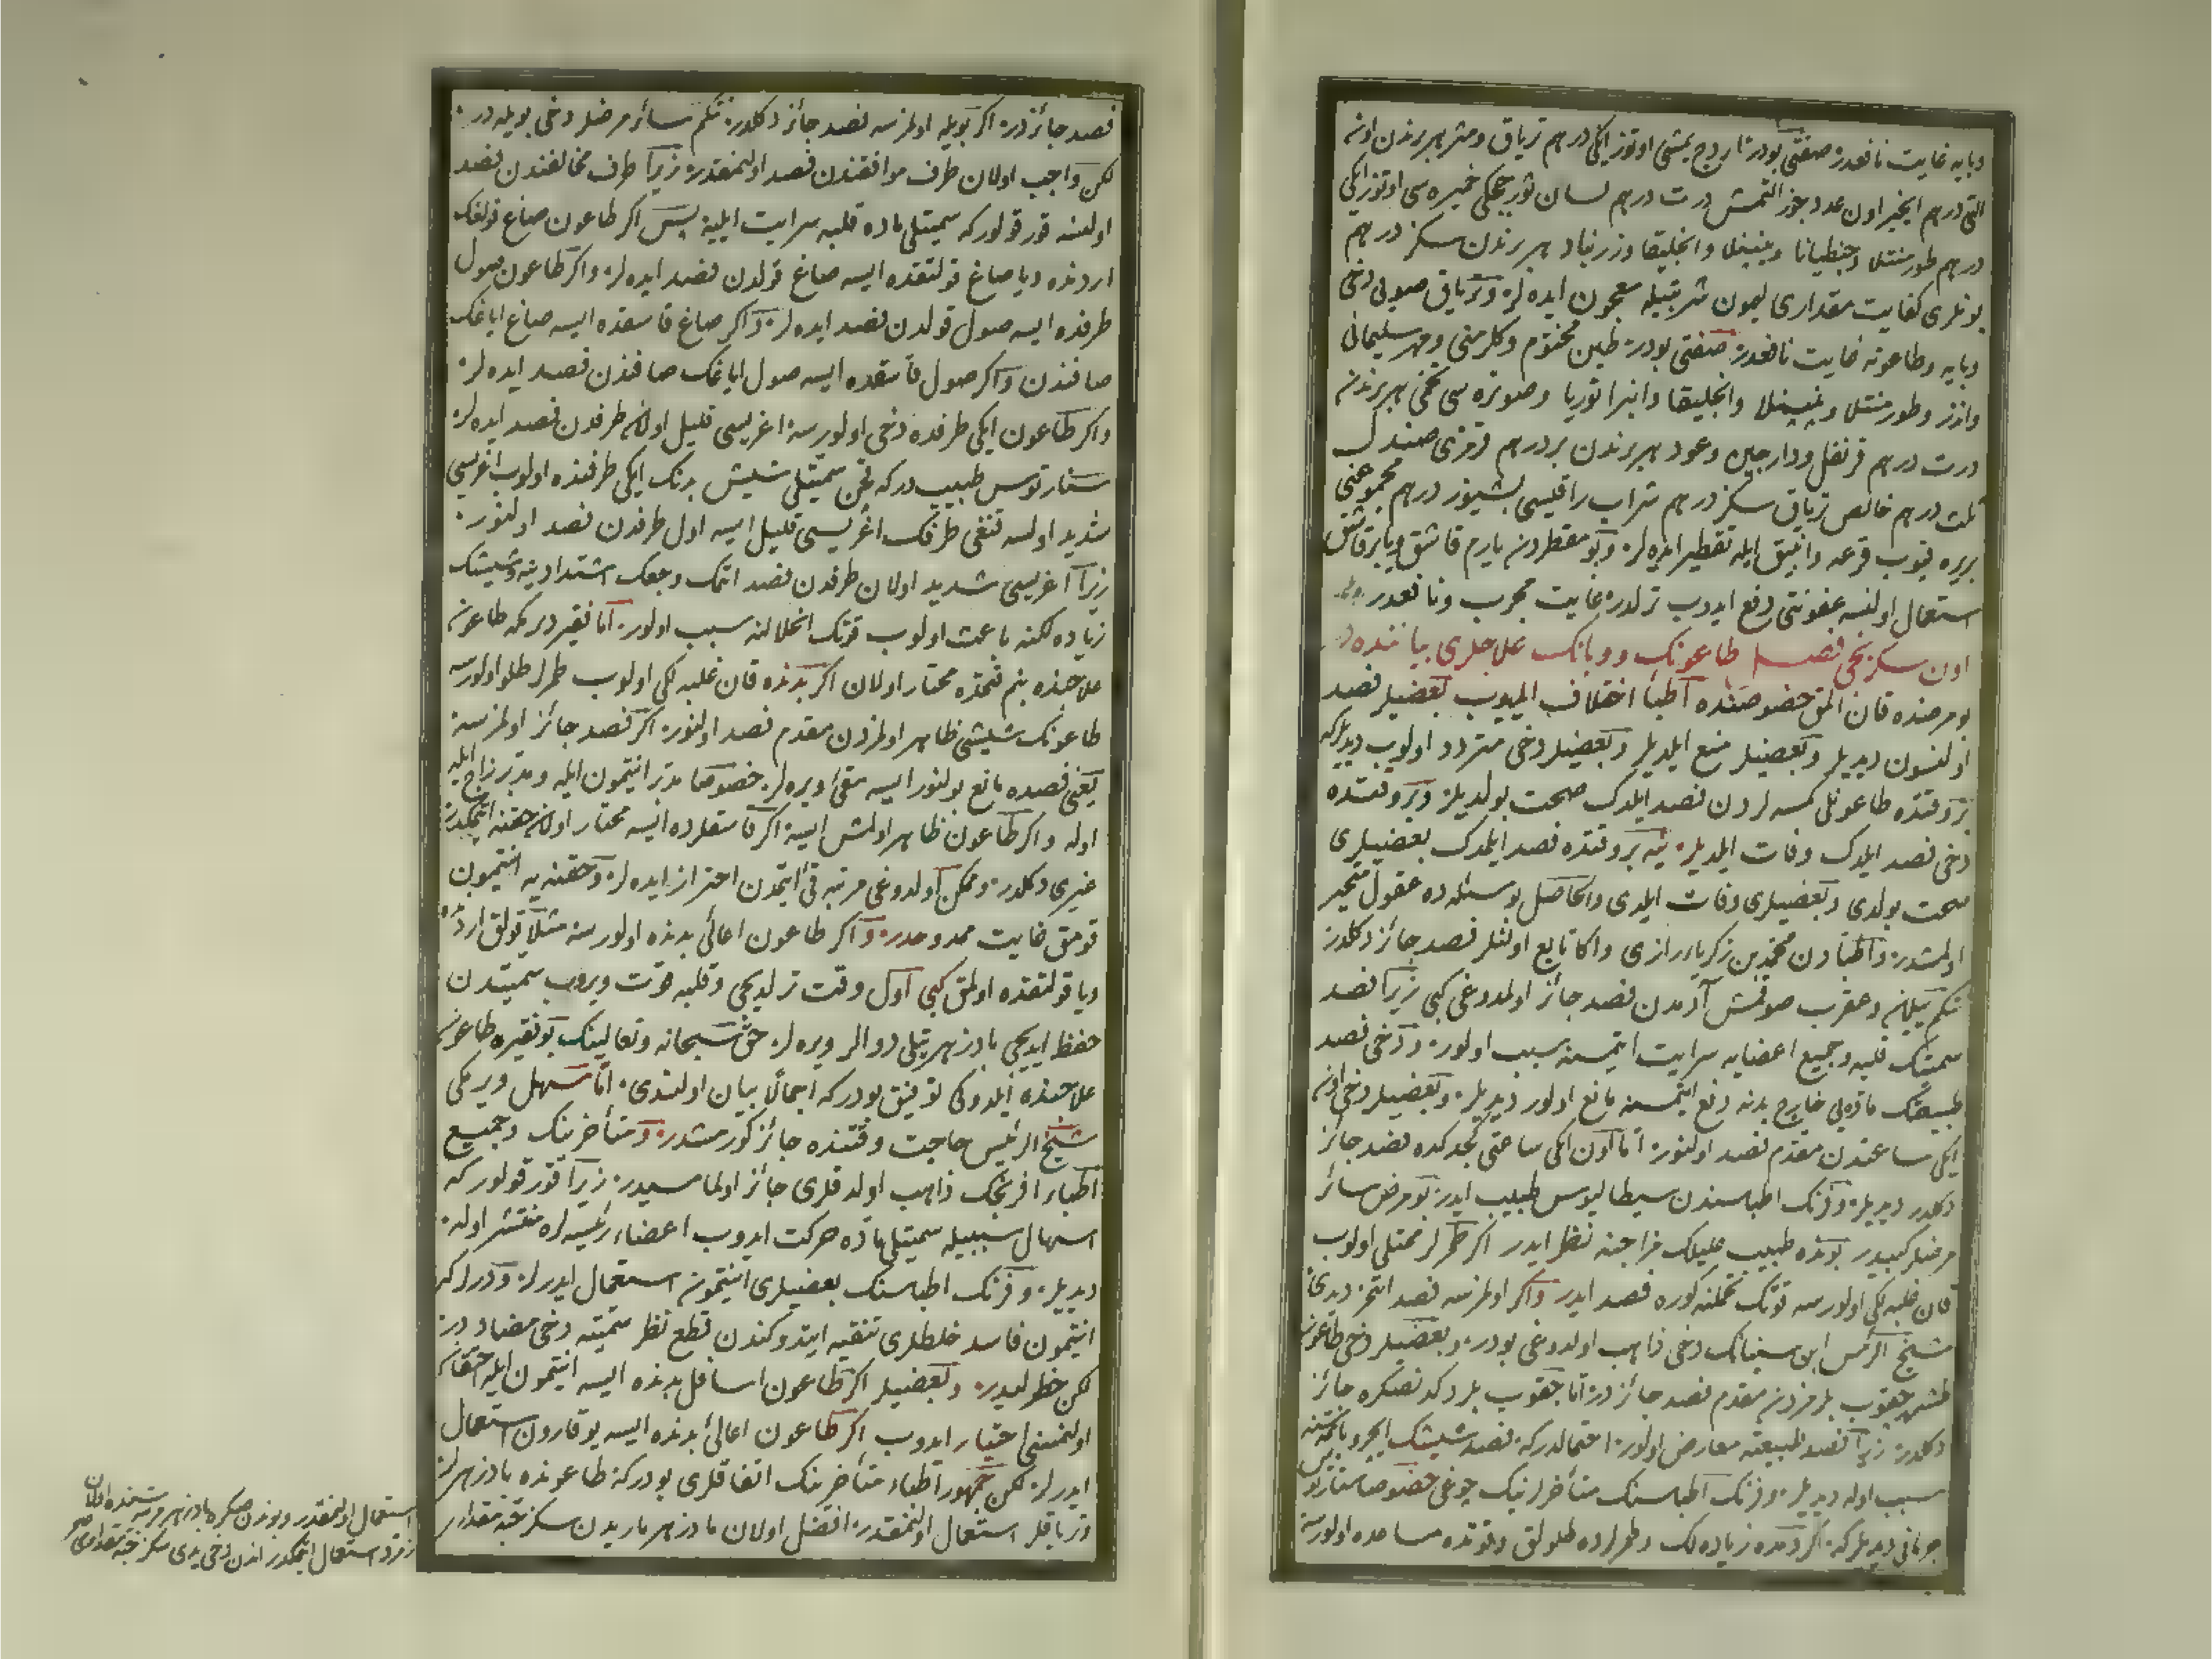 وبايه غايت نافعدر صفتى بودر اردج يمشى اوتوز ايكى درهم ترياق ومثر هر برندن اونه
التى درهم انجير اون عدد جوز التمش درت درهم لسان ثور چچكى خميره سى اوتوز ايكى
درهم طورمنتلا وجنطيانا وپنپنلا وانجليقا وزرنباد هر برندن سكز درهم
بونلرى كفايت مقدارى ليمون شربتيله معجون ايده لر وترياق صويى دخى
وبايه وطاعونه غايت نافعدر صفتى بودر طين مختوم وكلرمنى ومهر سليمانى
وطورمنتلا وپنپنلا وانجليقا وانبراتوريا وصوتره سى تخمى هر برندن
درت درهم قرنفل ودارچين وعود هر برندن بر درهم قرمزى صندل
ثلث درهم خالص ترياق سكز درهم شراب راقيسى بشيوز درهم مجموعنى
بريره قيوب قرعه وانبيق ايله تقطير ايده لر وبو مقطردن يارم قاشق ويا بر قاشق
استعمال اولنسه عفونتى دفع ايدوب ترلدر غايت مجرب ونافعدر
اون سكزنجى فصل طاعونك ووبانك علاجلرى بياننده در
بو مرضده قان المق خصوصنده اطبا اختلاف ايليوب بعضيلر فصد
اولنسون ديديلر وبعضيلر منع ايلديلر وبعضيلر دخى متردد اولوب ديديلركه
بر وقتده طاعونلى كمسه لردن فصد ايلدك صحت بولديلر وبر وقتده
دخى فصد ايلدك وفات ايلديلر ينه بر وقتده فصد ايلدك بعضيلرى
صحت بولدى وبعضيلرى وفات ايلدى والحاصل بو مسئله ده عقول متحير
اولمشدر واطبادن محمد بن زكرياء رازى واكا تابع اولنلر فصد جائز دكلدر
نتكم ييلان وعقرب صوقمش آدمدن فصد جائز اولمدوغى كبى زيرا فصد
سميتك قلبه وجميع اعضايه سرايت ايتمسنه سبب اولور ودخى فصد
طبيعتك ماده يى خارج بدنه دفع ايتمسنه مانع اولور ديديلر وبعضيلر دخى اون
ايكى ساعتدن مقدم فصد اولنور اما اون ايكى ساعتى كچدكده فصد جائز
دكلدر ديديلر وفرنك اطباسندن سيطاليوس طبيب ايدر بو مرض سائر
مرضلر كبيدر بونده طبيب عليلك مزاجنه نظر ايدر اكر طمرلر ممتلى اولوب
قان غلبه لكى اولورسه قوتك تحملنه كوره فصد ايدر واكر اولمزسه فصد ايتمز ديدى
شيخ الرئيس ابن سينانك دخى ذاهب اولدوغى بودر وبعضيلر دخى طاعون
طشره چقوب بلرمزدن مقدم فصد جائزدر اما چقوب بلردكدنصكره جائز
دكلدر زيرا فصد طبيعته معارض اولور احتمالدركه فصد شيشك ايچرو باتمسنه
سبب اوله ديديلر وفرنك اطباسنك متأخرلرينك چوغى خصوصا سنارتوس
جرمانى ديديلركه اكر دمده زياده لك وطمرلرده طلولق وقوتده مساعده اولورسه
فصد جائزدر اكر بويله اولمزسه فصد جائز دكلدر نتكم سائر مرضلر دخى بويله در
لكن واجب اولان طرف موافقندن فصد اولنمقدر زيرا طرف مخالفندن فصد
اولنسه قورقولوركه سميتلى ماده قلبه سرايت ايليه پس اكر طاعون صاغ قولغك
اردنده ويا صاغ قولتقده ايسه صاغ قولدن فصد ايده لر واكر طاعون صول
طرفده ايسه صول قولدن فصد ايده لر واكر صاغ قاسقده ايسه صاغ اياغك
صافندن واكر صول قاسقده ايسه صول اياغك صافندن فصد ايده لر
واكر طاعون ايكى طرفده دخى اولورسه اغريسى قليل اولان طرفدن فصد ايده لر
سنارتوس طبيب دركه قچن سميتلى شيش بدنك ايكى طرفنده اولوب اغريسى
شديد اولسه قنغى طرفك اغريسى قليل ايسه اول طرفدن فصد اولنور
زيرا اغريسى شديد اولان طرفدن فصد اتمك وجعك اشتدادينه وشيشك
زياده لكنه باعث اولوب قوتك انحلالنه سبب اولور اما فقير ديركه طاعون
علاجنده بنم قتمده مختار اولان اكر بدنده قان غلبه لكى اولوب طمرلر طلو اولورسه
طاعونك شيشى ظاهر اولمزدن مقدم فصد اولنور اكر فصد جائز اولمزسه
يعنى فصده مانع بولنور ايسه مقئ ويره لر خصوصا مدبر انتيمون ايله ومدبر زاج ايله
اوله واكر طاعون ظاهر اولمش ايسه اكر قاسقلرده ايسه مختار اولان حقنه ايتمكدر
غيرى دكلدر وممكن اولدوغى مرتبه قئ ايتمدن احتراز ايده لر وحقنه يه انتيمون
قومق غايت ممدوحدر واكر طاعون اعالئ بدنده اولورسه مثلا قولق اردنده
ويا قولتقده اولمق كبى اول وقت ترلديجى وقلبه قوت ويروب سميتدن
حفظ ايديجى بادزهريتلى دوالر ويره لر حق سبحانه وتعالينك بو فقيره طاعون
علاجنده ايلدوكى توفيق بودركه اجمالا بيان اولندى اما مسهل ويرمكى
شيخ الرئيس حاجت وقتنده جائز كورمشدر ومتأخرينك وجميع
اطباء افرنجك ذاهب اولدقلرى جائز اولمامسيدر زيرا قورقولوركه
اسهال سببيله سميتلى ماده حركت ايدوب اعضاء رئيسه لره منتشر اوله
ديديلر وفرنك اطباسنك بعضيلرى انتيمون استعمال ايدرلر ودرلركه
انتيمون فاسد خلطلرى تنقيه ايتدوكندن قطع نظر سميته دخى مضاددر
لكن خطرليدر وبعضيلر اكر طاعون اسافل بدنده ايسه انتيمون ايله احتقان
اولنمسنى اختيار ايدوب اكر طاعون اعالئ بدنده ايسه يوقارودن استعمال
ايدرلر لكن جمهور اطباء متأخرينك اتفاقلرى بودركه طاعونده بادزهرلر
وترياقلر استعمال اولنمقدر افضل اولان بادزهر ماريدن سكز حبه مقدارى
استعمال اولنمقدر وبوندن صكره بادزهر
زمرد استعمال ايتمكدر اندن دخى يدى سكز حبه مقدارى